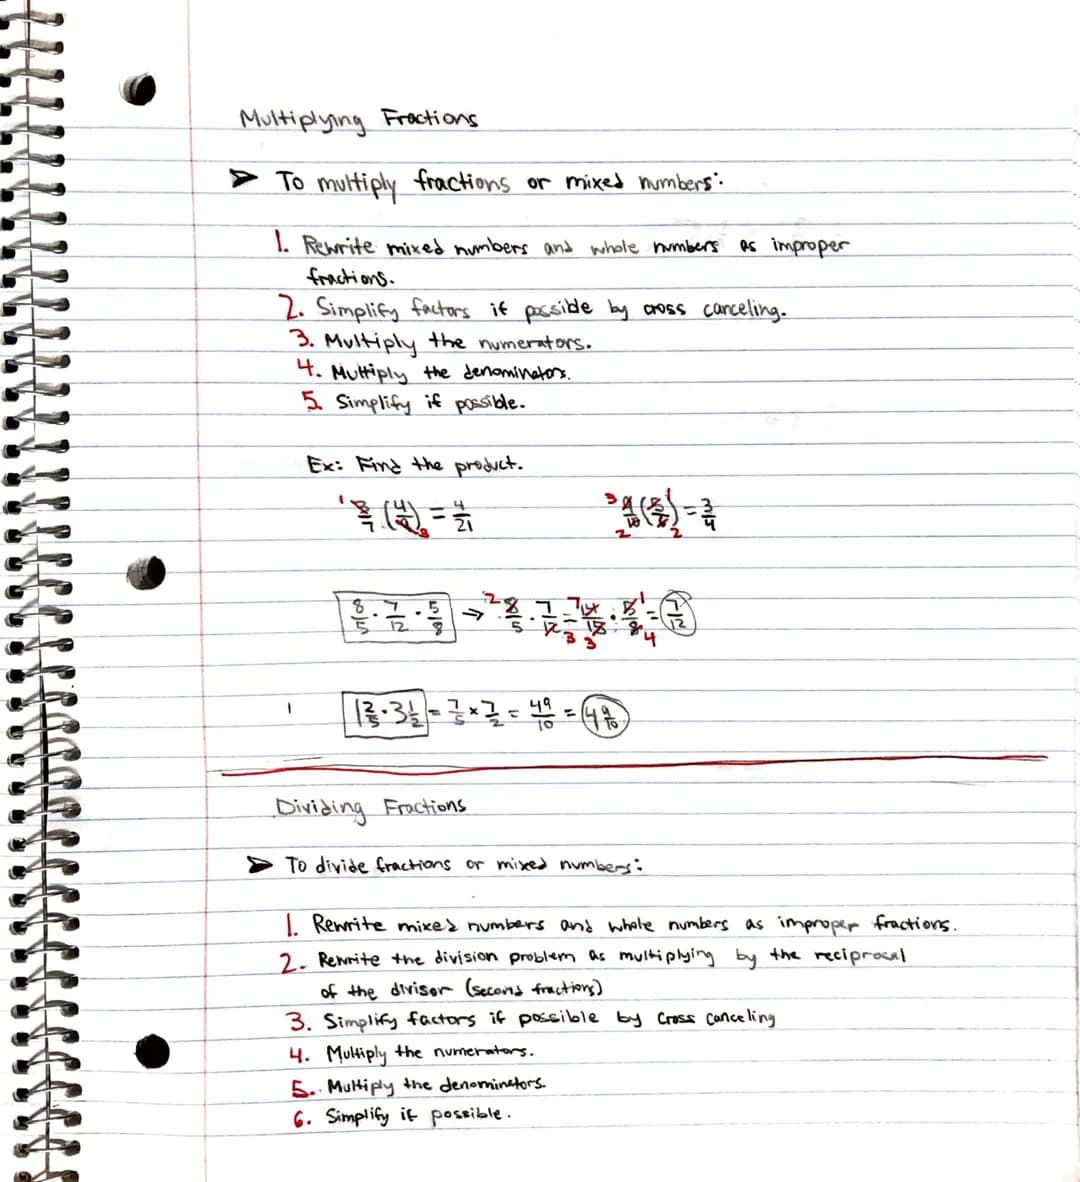 Multiplying Fractions
➤ To multiply fractions or mixed numbers:
1. Rewrite mixed numbers and whole numbers as improper
fractions.
2. Simplify factors if possible by cross canceling.
3. Multiply the numerators.
4. Multiply the denominators.
5. Simplify if possible.
Ex: Find the product.
1 3/7 · (4/9) 3 = 4/21   3 9/10 2 (5/6) 1 2 = 3/4
8/5 · 7/12 · 5/8 → 2 8/5 · 7/12 3 = 7 14/15 3 · 5/8 1 4 = 7/12
1 1 2/5 · 3 1/2 = 7/5 × 7/2 = 49/10 = 4 9/10
Dividing Fractions
➤ To divide fractions or mixed numbers:
1. Rewrite mixed numbers and whole numbers as improper fractions.
2. Rewrite the division problem as multiplying by the reciprocal
of the divisor (second fractions)
3. Simplify factors if possible by cross canceling
4. Multiply the numerators.
5. Multiply the denominators.
6. Simplify if possible.